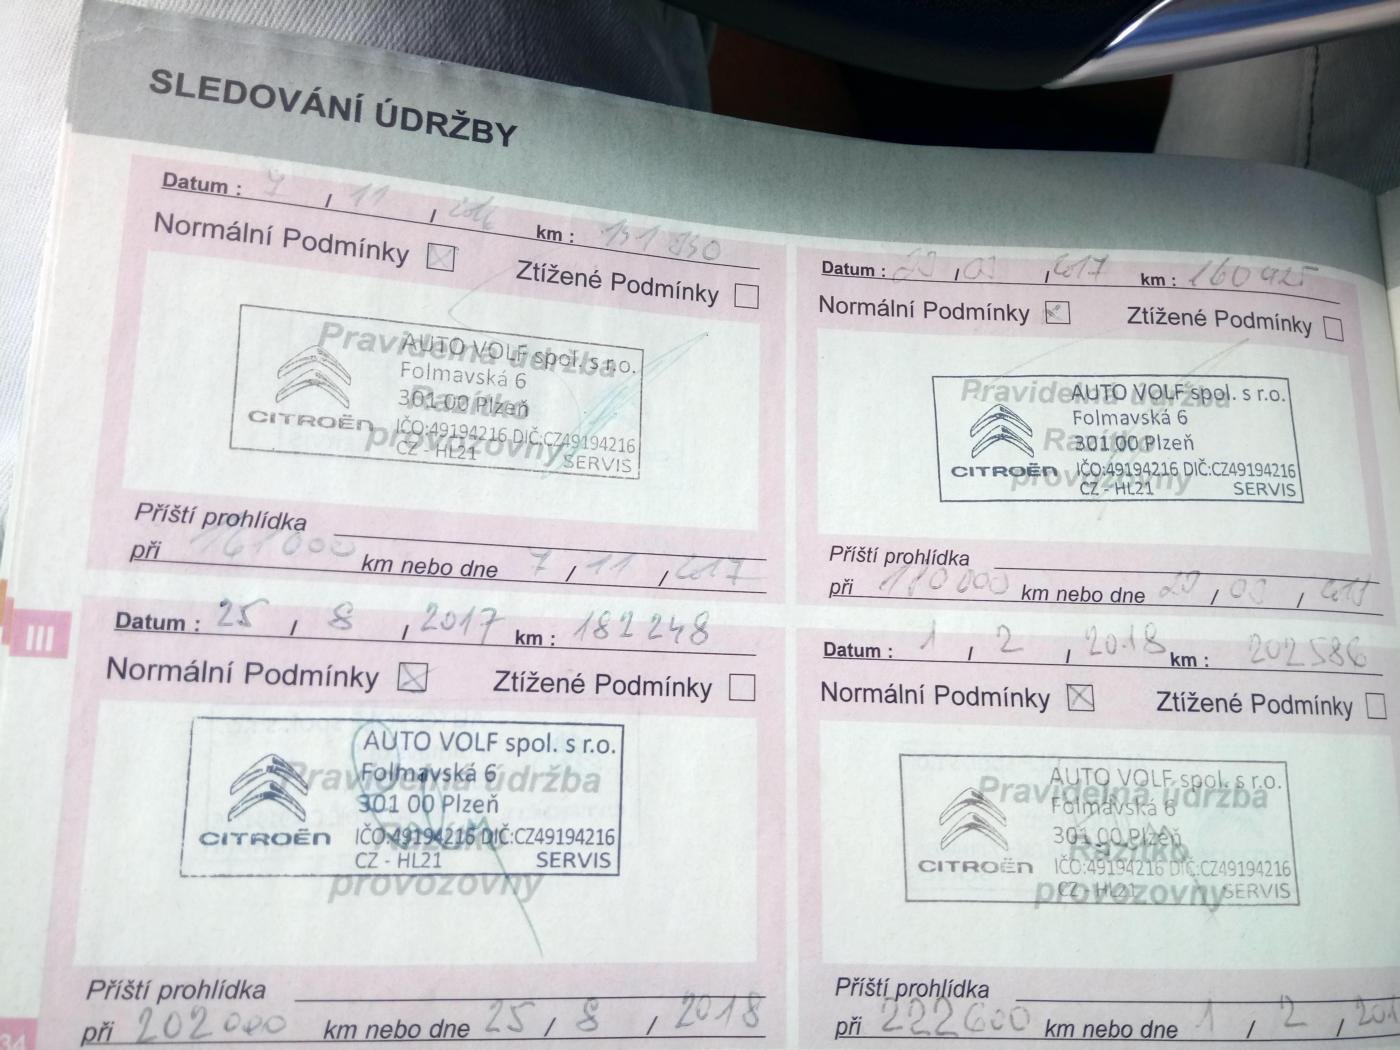 SLEDOVÁNÍ ÚDRŽBY
Datum : 7 / 11 / 2016 km :
Normální Podmínky Ztížené Podmínky
Pravidelná údržba
Razítko
provozovny
AUTO VOLF spol. s r.o.
Folmavská 6
301 00 Plzeň
CITROËN IČO:49194216 DIČ:CZ49194216
CZ - HL21 SERVIS
Příští prohlídka
při 161 000 km nebo dne 7 / 11 / 2017
Datum : / / 2017 km : 160 925
Normální Podmínky Ztížené Podmínky
Pravidelná údržba
Razítko
provozovny
AUTO VOLF spol. s r.o.
Folmavská 6
301 00 Plzeň
CITROËN IČO:49194216 DIČ:CZ49194216
CZ - HL21 SERVIS
Příští prohlídka
při km nebo dne / /
III
Datum : 25 / 8 / 2017 km : 182 248
Normální Podmínky Ztížené Podmínky
Pravidelná údržba
Razítko
provozovny
AUTO VOLF spol. s r.o.
Folmavská 6
301 00 Plzeň
CITROËN IČO:49194216 DIČ:CZ49194216
CZ - HL21 SERVIS
Příští prohlídka
při 202 000 km nebo dne 25 / 8 / 2018
Datum : 1 / 2 / 2018 km : 202 586
Normální Podmínky Ztížené Podmínky
Pravidelná údržba
Razítko
provozovny
AUTO VOLF spol. s r.o.
Folmavská 6
301 00 Plzeň
CITROËN IČO:49194216 DIČ:CZ49194216
CZ - HL21 SERVIS
Příští prohlídka
při 222 600 km nebo dne 1 / 2 / 201
34